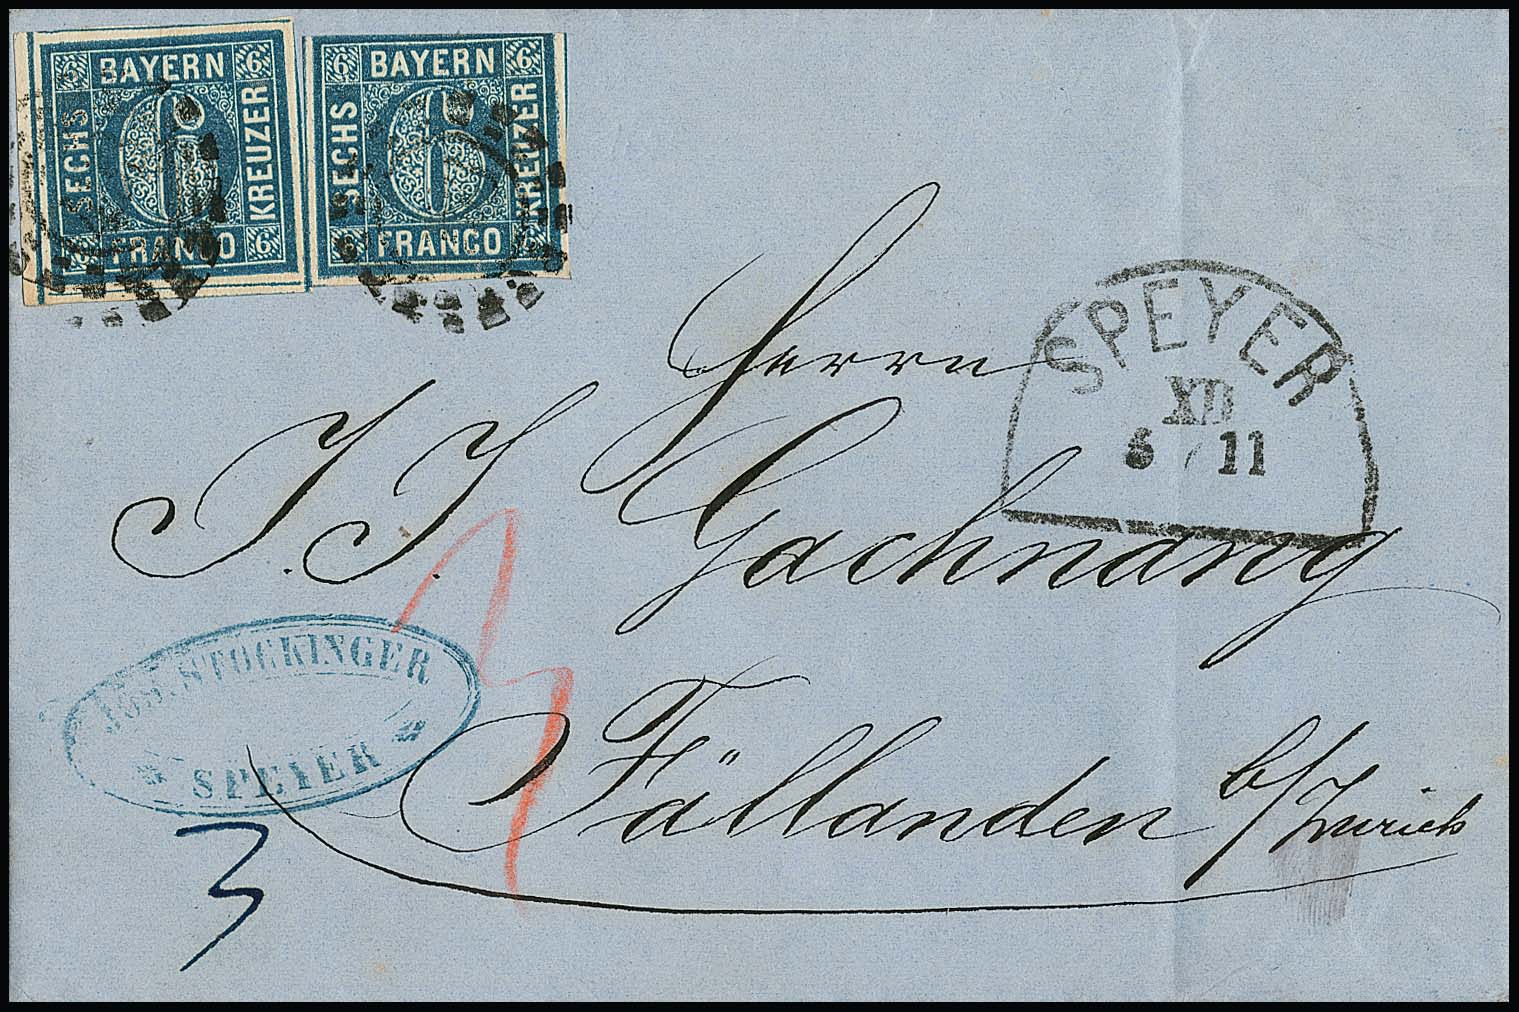 6 BAYERN 6
SECHS 6 KREUZER
6 FRANCO 6
6 BAYERN 6
SECHS 6 KREUZER
6 FRANCO 6
SPEYER
XII
6 / 11
Herrn
J. J. Gachnang
Fällanden b/Zürich
JOS. STOCKINGER
SPEYER
3